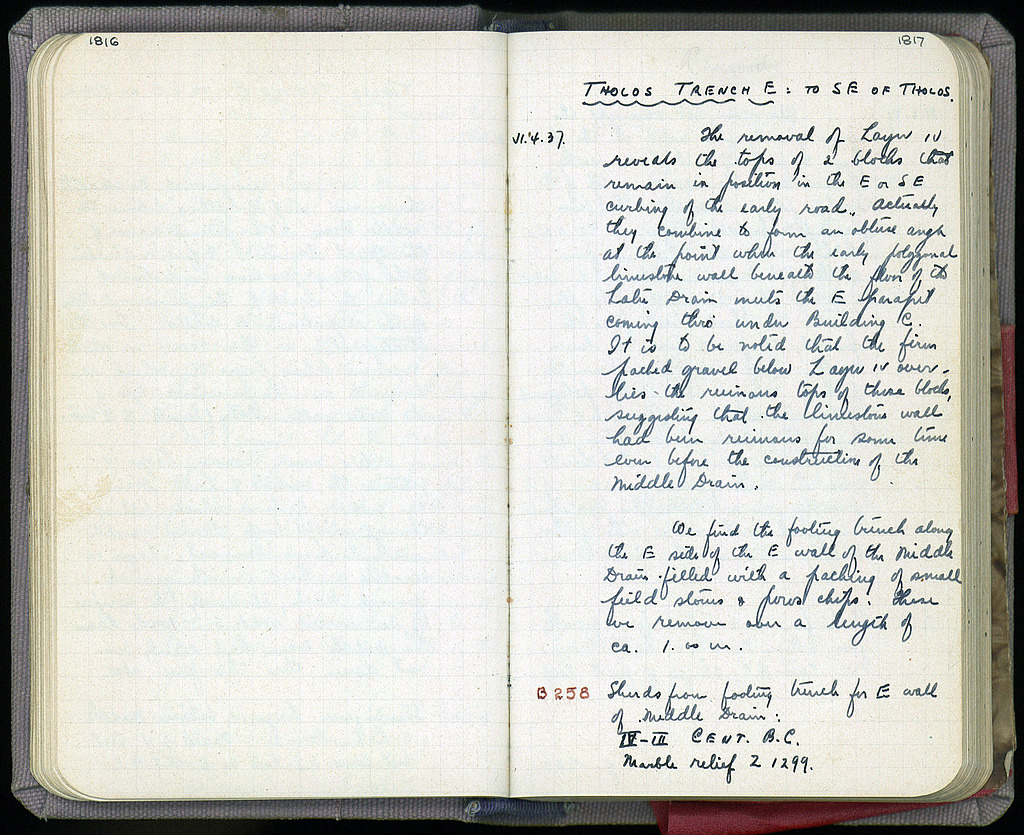 1816
1817
THOLOS TRENCH E : TO SE OF THOLOS.
VI.'4.37.
The removal of Layer IV
reveals the tops of 2 blocks that
remain in position in the E or SE
curbing of the early road. Actually
they combine to form an obtuse angle
at the point where the early polygonal
limestone wall beneath the floor of the
Later Drain meets the E parapet
coming thro' under Building C.
It is to be noted that the firm
packed gravel below Layer IV over-
lies the ruinous tops of these blocks,
suggesting that the limestone wall
had been ruinous for some time
even before the construction of the
Middle Drain.
We find the footing trench along
the E side of the E wall of the Middle
Drain filled with a packing of small
field stones & poros chips. These
we remove over a length of
ca. 1.00 m.
B 258
Sherds from footing trench for E wall
of Middle Drain:
IV-III CENT. B.C.
Marble relief Σ 1299.